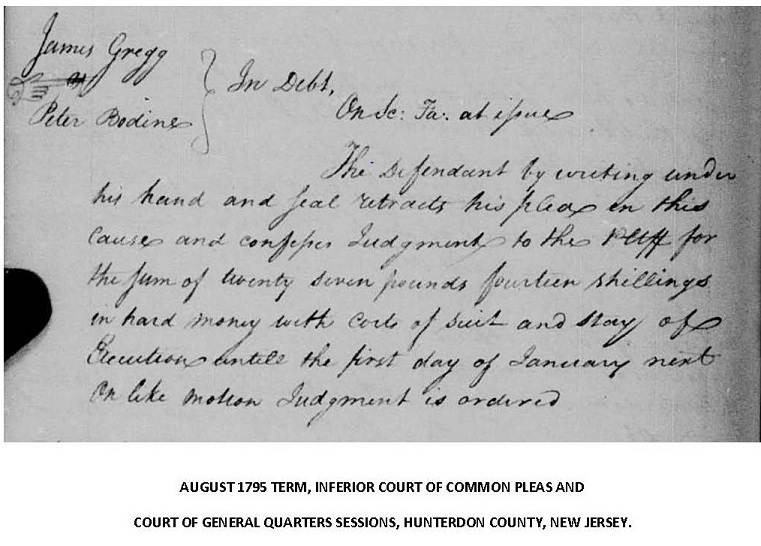 James Gregg
Peter Bodine
In Debt,
On Sc: Fa: at issue
The Defendant by writing under
his hand and seal retracts his plea in this
Cause and confesses Judgment to the Pltff for
the sum of twenty seven pounds fourteen shillings
in hard money with costs of suit and stay of
Execution untill the first day of January next
On like motion Judgment is ordered
AUGUST 1795 TERM, INFERIOR COURT OF COMMON PLEAS AND
COURT OF GENERAL QUARTERS SESSIONS, HUNTERDON COUNTY, NEW JERSEY.